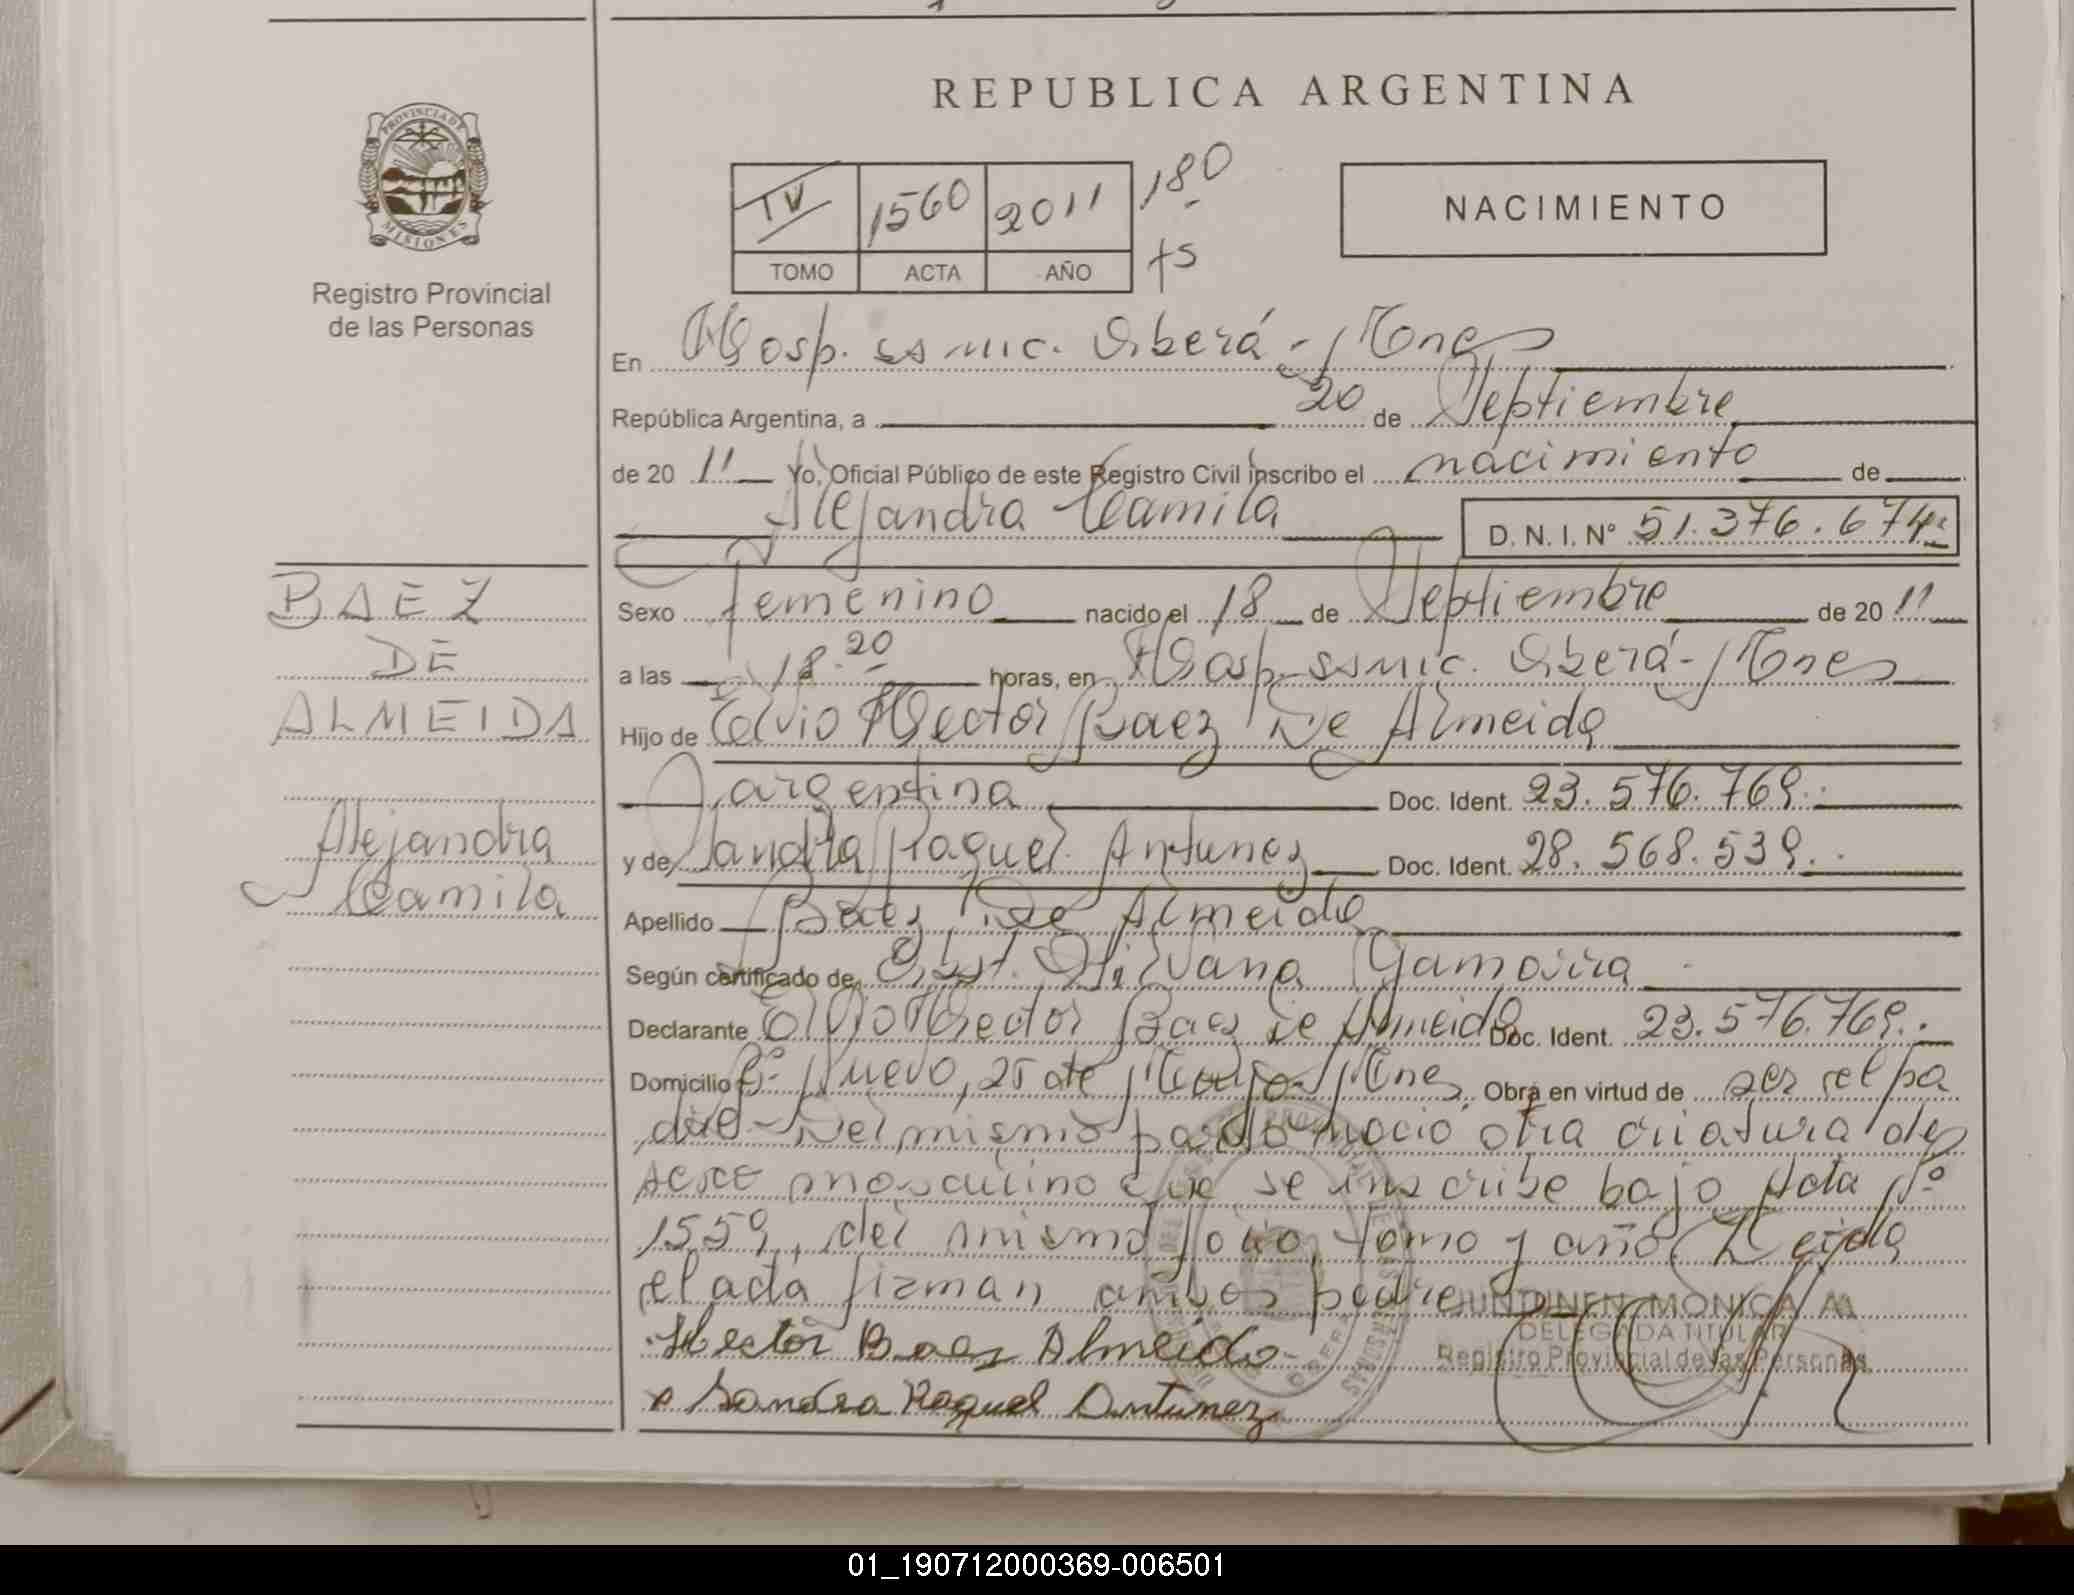 REPUBLICA ARGENTINA
PROVINCIA DE
MISIONES
Registro Provincial
de las Personas
IV 1560 2011 180
TOMO ACTA AÑO
NACIMIENTO
En Hosp. ssmic. Oberá - Mnes
República Argentina, a 20 de Septiembre
de 20 11 Yo, Oficial Público de este Registro Civil inscribo el nacimiento de
Alejandra Camila D. N. I. Nº 51.376.674
BAEZ
DE
ALMEIDA
Alejandra
Camila
Sexo femenino nacido el 18 de Septiembre de 20 11
a las 18.20 horas, en Hosp. ssmic. Oberá - Mnes
Hijo de Elvio Hector Baez De Almeida
argentina Doc. Ident. 23.576.769
y de Sandra Raquel Antunez Doc. Ident. 28.568.539
Apellido Baez De Almeida
Según certificado de Obst. Silvana
Declarante Elvio Hector Baez De Almeida Doc. Ident. 23.576.769
Domicilio Bº Nuevo, 25 de Mayo - Mnes Obra en virtud de ser el pa
dre - Del mismo parto nació otra criatura de
sexo masculino que se inscribe bajo Acta Nº
1559, del mismo folio, tomo y año. Leida
el acta firman ambos padres
MONICA M
DELEGADA TITULAR
Registro Provincial de las Personas
Hector Baez Almeida
Sandra Raquel Antunez
01_190712000369-006501